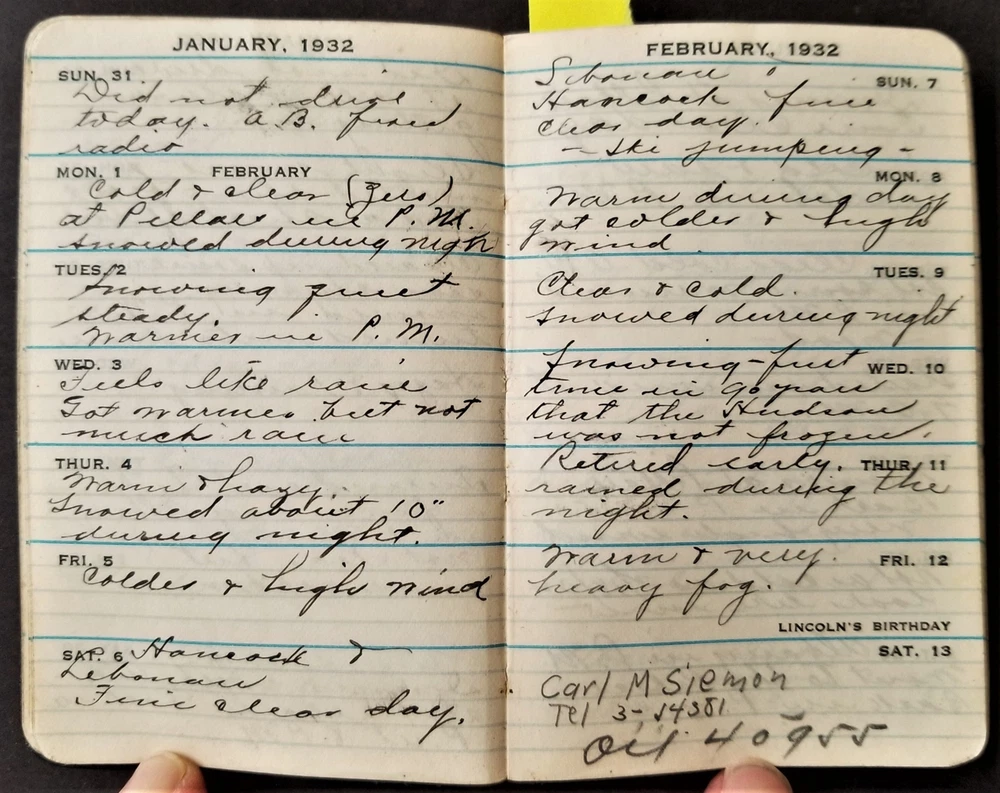 JANUARY, 1932
SUN. 31
Did not drive
today. A.B. fixed
radio
MON. 1 FEBRUARY
Cold & clear (Zero)
at Pillars in P.M.
snowed during night
TUES. 2
Snowing quiet
steady.
Warmer in P.M.
WED. 3
Feels like rain
Got warmer but not
much rain
THUR. 4
Warm & hazy.
Snowed about 10"
during night.
FRI. 5
Colder & high wind
SAT. 6 Hancock &
Lebonan
Fine clear day.
FEBRUARY, 1932
SUN. 7
Lebonan
Hancock fine
clear day.
- Ski jumping -
MON. 8
Warm during day
got colder & high
wind
TUES. 9
Clear & cold.
Snowed during night
WED. 10
Snowing - first
time in 90 years
that the Hudson
was not frozen.
THUR. 11
Retired early.
rained during the
night.
FRI. 12
Warm & very
heavy fog.
LINCOLN'S BIRTHDAY
SAT. 13
Carl M Siemon
Tel 3-
Oil 40955